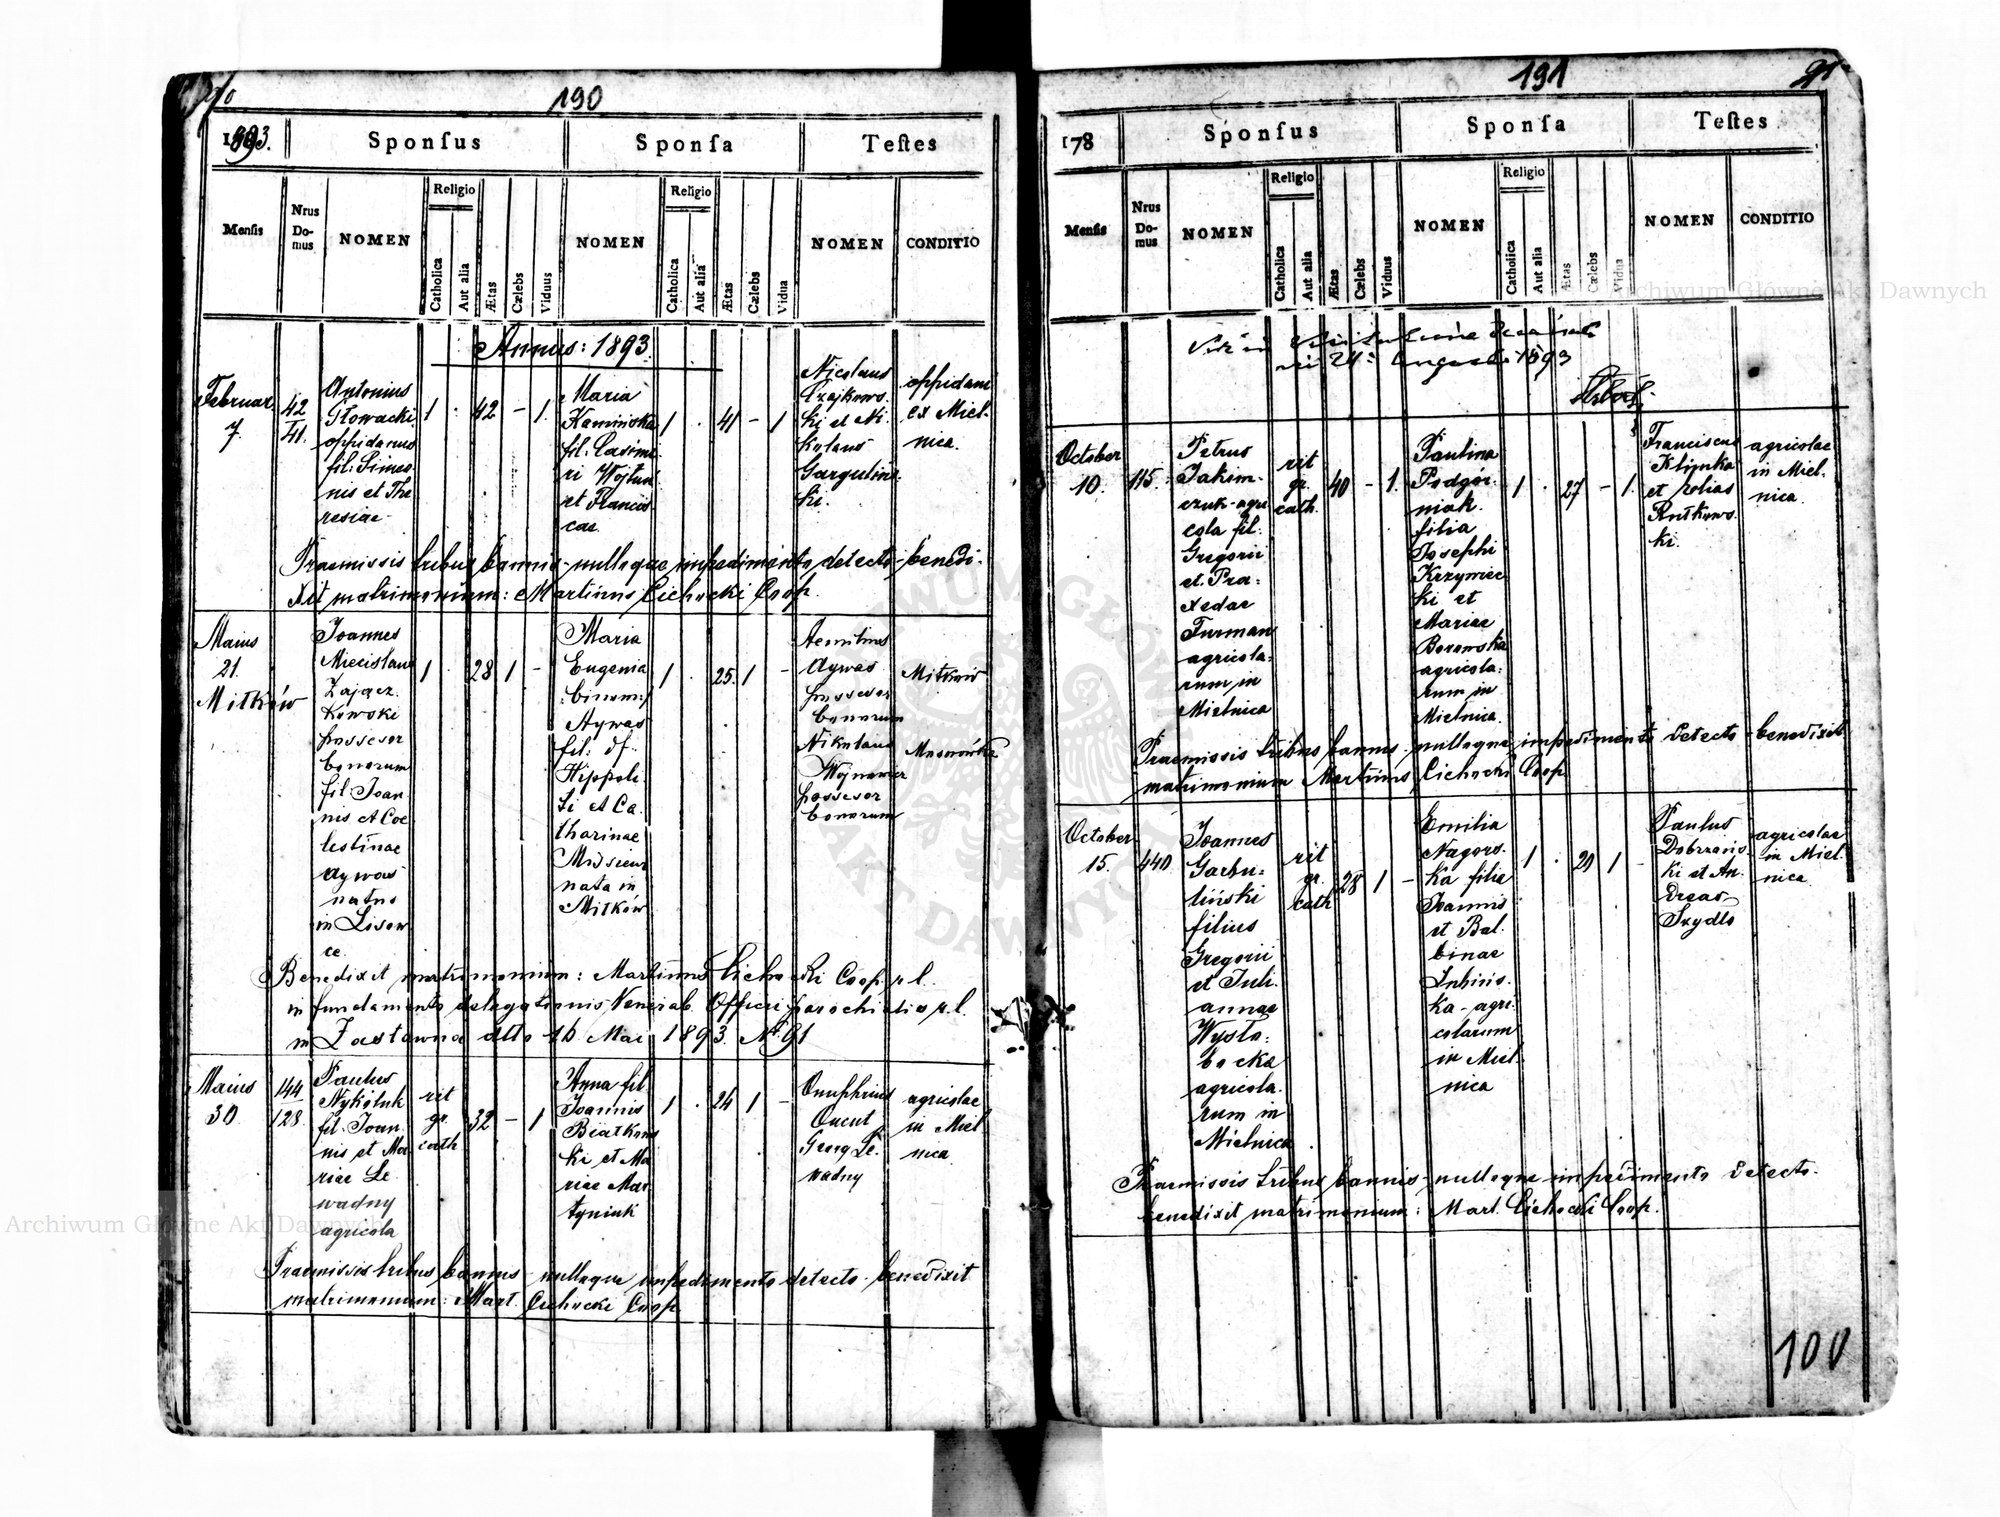 90
190
1893.
Sponſus
Sponſa
Teſtes
Menſis
Nrus Do-mus
NOMEN
Religio
Catholica
Aut alia
Ætas
Cælebs
Viduus
NOMEN
Religio
Catholica
Aut alia
Ætas
Cælebs
Vidua
NOMEN
CONDITIO
Annus: 1893
Februar.
7.
42
41.
Antonius
Głowacki
oppidanus
fil: Simeo
nis et The
resiae
1 . 42 – 1.
Maria
Kamińska
fil: Casimi
ri Wojtun
et Francis
cae
1 . 41 – 1
Nicolaus
Czajkows
ki et Ni
kolaus
Gargulins
ki.
oppidani
ex Miel-
nica.
Praemissis tribus bannis – nulloque impedimento detecto – benedi-
xit matrimonium: Martinus Cichocki Coop.
Maius
21.
Mitków
Joannes
Miecislaus
Zającz
kowski
possesor
bonorum
fil: Joan
nis et Coe
lestinae
Aywas
natus
in Lisow
ce
1 . 28 1 –
Maria
Eugenia
binom:/
Aywas
fil: df.
Hippoli
ti et Ca
tharinae
nata in
Mitków
1 . 25. 1 –
Aemilius
Aywas
possesor
bonorum
Nikolaus
possesor
bonorum
Mitków
Benedixit matrimonium: Martinus Cichocki Coop. r. l.
in fundamento delegationis Venerab. Officii parochialis r. l.
in Zastawna dtto 16 Mai 1893 No 91
Maius
30.
144
128.
Paulus
Nykoluk
fil: Joan
nis et Ma
riae Le
wadny
agricola
rit
gr.
cath
32 – 1
Anna fil.
Joannis
Białkows
ki et Ma
riae Mar
tyniuk
1 . 24 1 –
Onuphrius
Georg Le
wadny
agricolae
in Miel
nica
Praemissis tribus bannis – nulloque impedimento detecto – benedixit
matrimonium: Mart. Cichocki Coop.
191
91
178
Sponſus
Sponſa
Teſtes
Menſis
Nrus Do-mus
NOMEN
Religio
Catholica
Aut alia
Ætas
Cælebs
Viduus
NOMEN
Religio
Catholica
Aut alia
Ætas
Cælebs
Vidua
NOMEN
CONDITIO
1893
October
10.
115.
Petrus
Jakim-
czuk – agri
cola fil:
Gregorii
et Pra-
xedae
Furman
agricola-
rum in
Mielnica
rit
gr.
cath.
40 – 1.
Paulina
Podgór-
niak
filia
Josephi
Krzywiec
ki et
Mariae
Borowska
agricola-
rum in
Mielnica.
1 . 27 – 1.
Franciscus
Klimka
et
Rutkows
ki.
agricolae
in Miel-
nica.
Praemissis tribus bannis – nulloque impedimento detecto – benedixit
matrimonium Martinus Cichocki Coop
October
15.
440
Joannes
Garbu-
liński
filius
Gregorii
et Juli
annae
Wysło-
bocka
agricola-
rum in
Mielnica
rit
gr.
cath
28 1 –
Emilia
Nagórs-
ka filia
Joannis
et Bal-
binae
ka – agri
colarum
in Miel
nica
1 . 20 1 –
Paulus
Dobrzańs-
ki et An-
dreas
Szydło
agricolae
in Miel
nica
Praemissis tribus bannis – nulloque impedimento detecto –
benedixit matrimonium: Mart. Cichocki Coop.
100
Archiwum Główne Akt Dawnych
Archiwum Główne Akt Dawnych